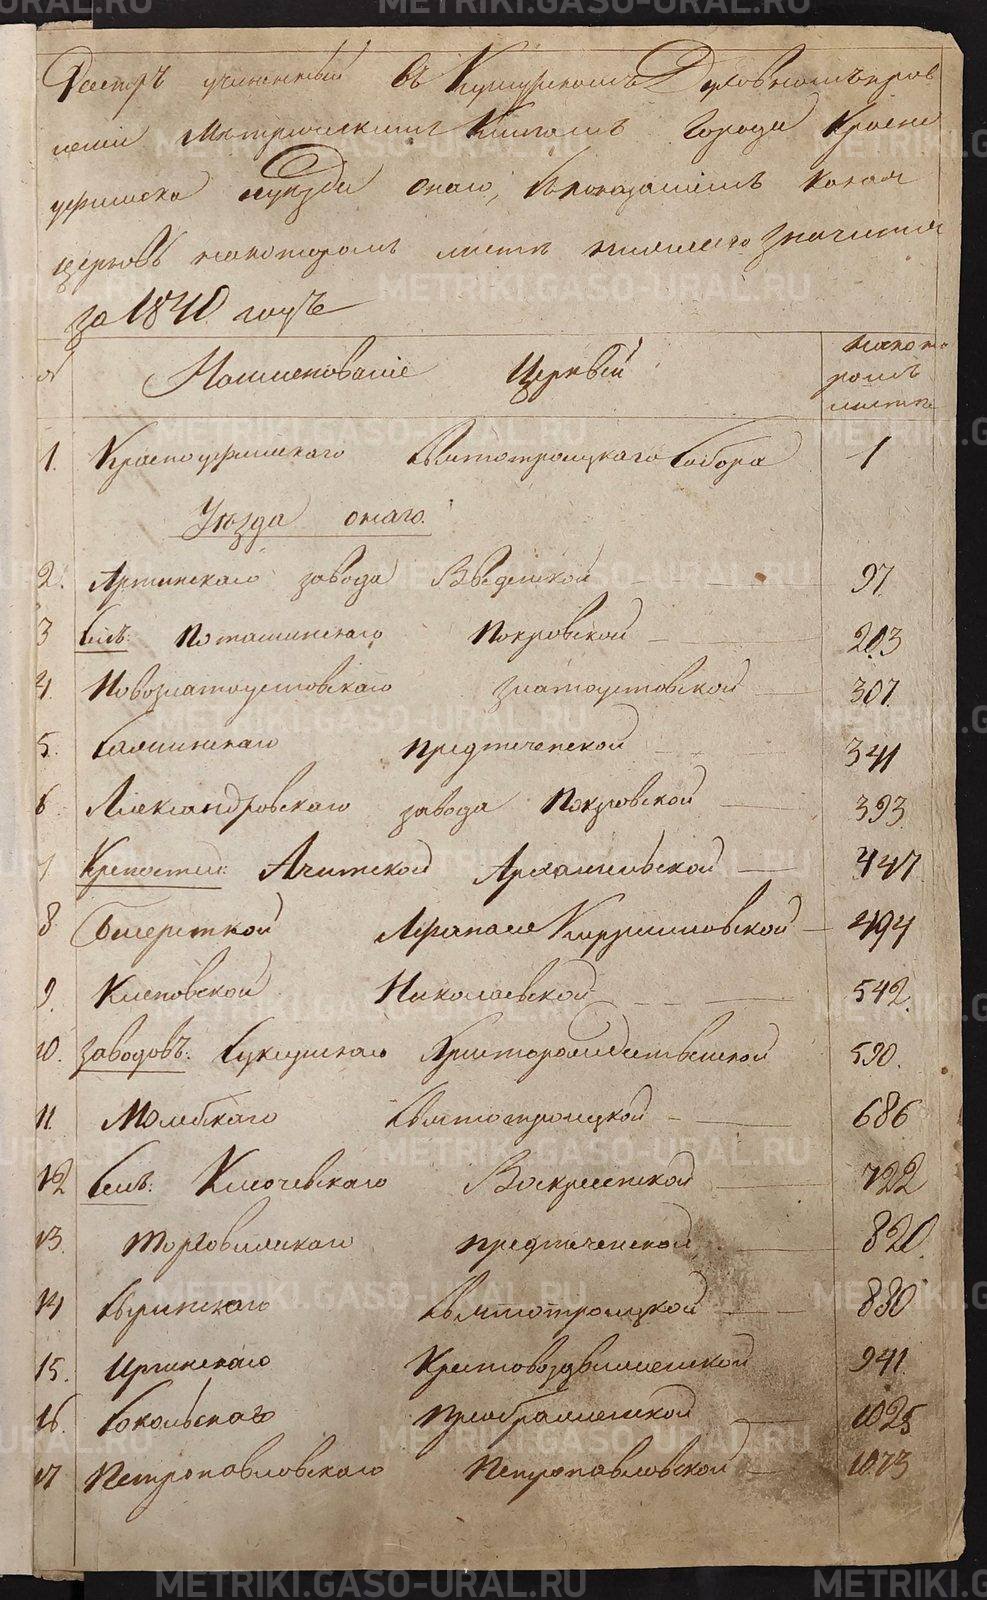 Реэстръ учиненный въ Кунгурскомъ Духовномъ прав
лении Метрическимъ Книгамъ города Красно
уфимска и уезда онаго, съ показаниемъ какая
церковь на которомъ листе значится
за 1840 годъ
№ Наименование Церквей на кото
ромъ
листе
1. Красноуфимскаго Святотроицкаго Собора 1
Уезда онаго.
2. Артинскаго завода Введенской 97
3 Селъ: Поташинскаго Покровской 203
4. Новозлатоустовскаго Златоустовской 307
5. Саминскаго Предтеченской 341
6 Александровскаго завода Покровской 393
7 Крепостей: Ачитской Архангельской 447
8 Бисертской Афанасие Кирилловской 494
9. Кленовской Николаевской 542
10. Заводовъ: Суксунскаго Христорождественской 590.
11. Молебскаго Святотроицкой 686
12 Селъ: Ключевскаго Воскресенской 722
13. Торговижскаго Предтеченской 820.
14 Сыринскаго Святотроицкой 880
15. Иргинскаго Крестовоздвиженской 941
16. Сокольскаго Преображенской 1025
17 Петропавловскаго Петропавловской 1073
METRIKI.GASO-URAL.RU